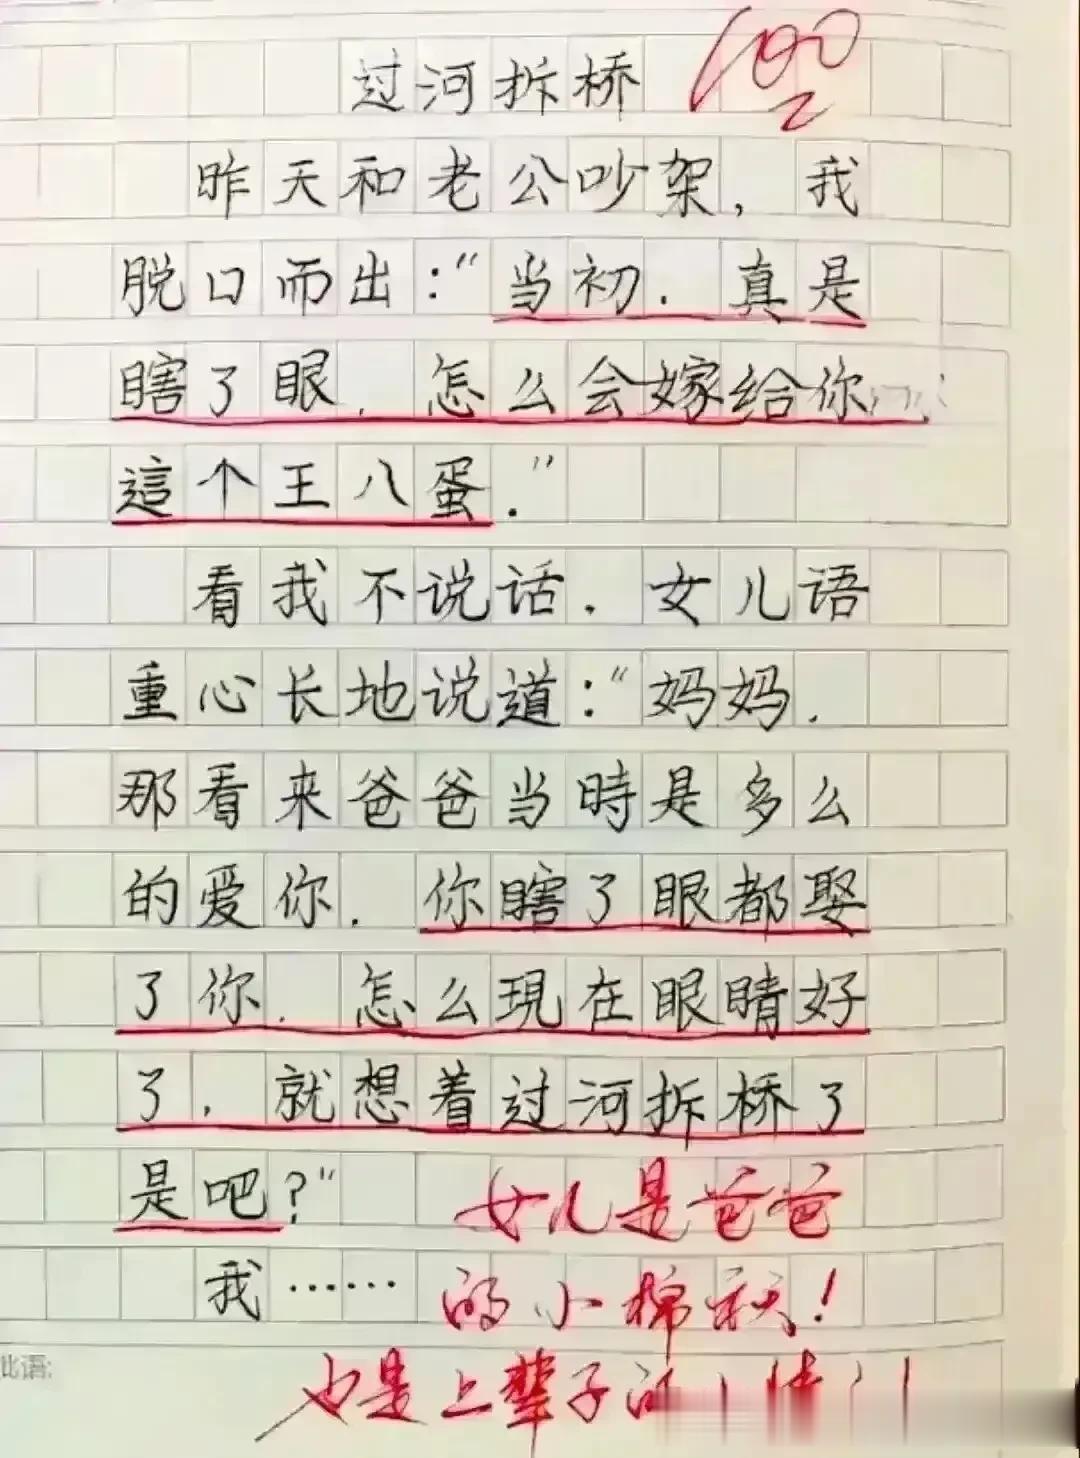 过河拆桥
100
昨天和老公吵架，我
脱口而出："当初．真是
瞎了眼．怎么会嫁给你
這个王八蛋．"
看我不说话．女儿语
重心长地说道："妈妈．
那看来爸爸当時是多么
的爱你．你瞎了眼都娶
了你．怎么現在眼睛好
了，就想着过河拆桥了
是吧？"
女儿是爸爸
我……
的小棉袄！
批语:
也是上辈子的小情